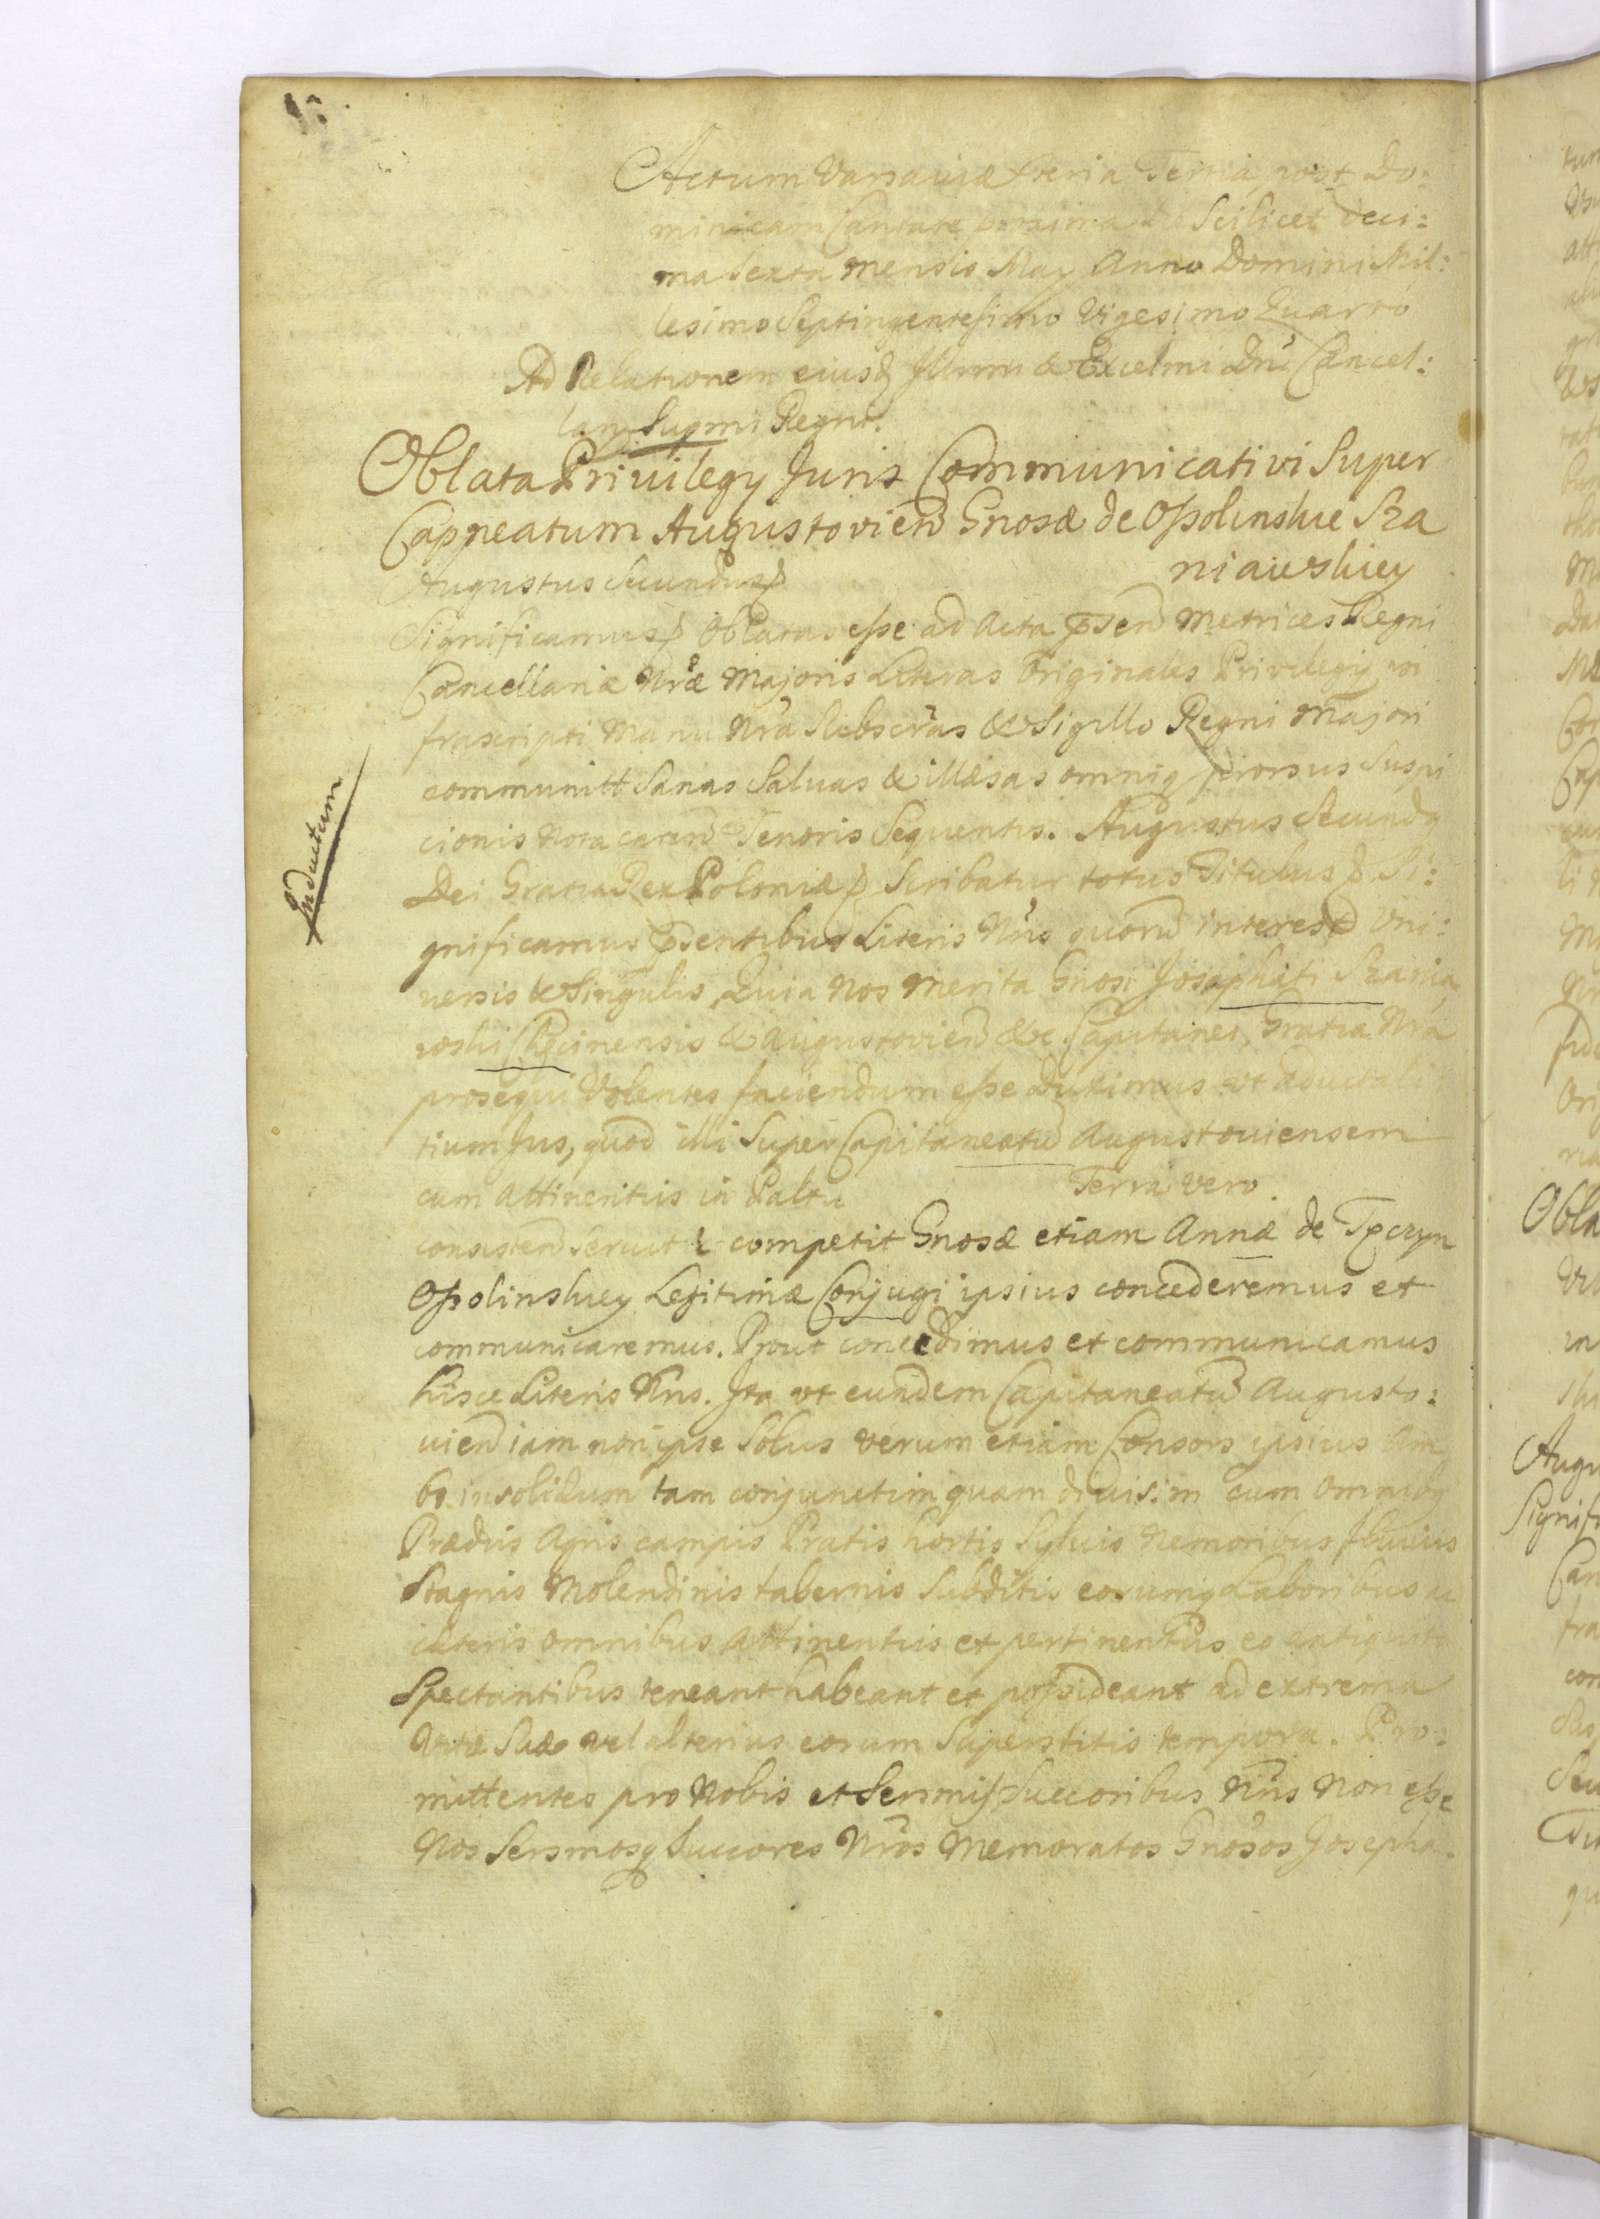 Actum Varsaviæ Feria Tertia post Do:
minicam Cantate proxima Scilicet deci:
ma Sexta Mensis May Anno Domini Mil:
lesimo Septingentesimo Vigesimo Quarto
Ad Relationem eiusq Illrmi & Excelmi Dni Cancel:
larii Supmi Regni.
Oblata Privilegy Juris Communicativi Super
Capneatum Augustovien Gnosæ de Ossolinskie Sza
niawskiey
Augustus Secundus
Significamus Oblatas esse ad Acta psen Metrices Regni
Cancellariæ Nræ Majoris Literas Originales Privilegij in
frascripti Manu Nra Subscras & Sigillo Regni Majori
communitt Sanas Salvas & illæsas omniq prorsus Suspi
cionis Nota caren Tenoris Sequentis. Augustus Secundq
Dei Gratia Rex Poloniæ Scribatur totus Titulus Si:
gnificamus psentibus Literis Nris quorum interest Vni:
versis & Singulis, Quia Nos Merita Gnosi Josaphati Szania
wski Checinensis & Augustovien & Capitanei, Gratia Nra
prosequi Volentes faciendum esse duximus vt advitali
tium Jus, quod illi Super Capitaneatu Augustoviensem
cum Attinentiis in Paltu Terra vero
consisten servit & competit Gnosæ etiam Annæ de Tęczyn
Ossolinskiey Legitimæ Conjugi ipsius concederemus et
communicaremus. Prout concedimus et communicamus
hisce Literis Nris. Ita vt eundem Capitaneatu Augusto:
vien iam non ipse Solus verum etiam Consors ipsius Am
bo insolidum tam conjunctim quam divisim cum Omnibq
Prædiis Agris campis Pratis hortis Sylvis Nemoribus fluviis
Stagnis Molendinis tabernis Subditis eorumq Laboribus ac
cæteris omnibus Attinentiis et pertinentiis eo antiquito
Spectantibus teneant habeant et possideant ad extrema
Vitæ Suæ vel alterius eorum Superstitis tempora. Pro:
mittentes pro Nobis et Sersmis Succoribus Nris Non esse
Nos Sersmosq Succores Nros Memoratos Gnosos Josepha.
Inductum